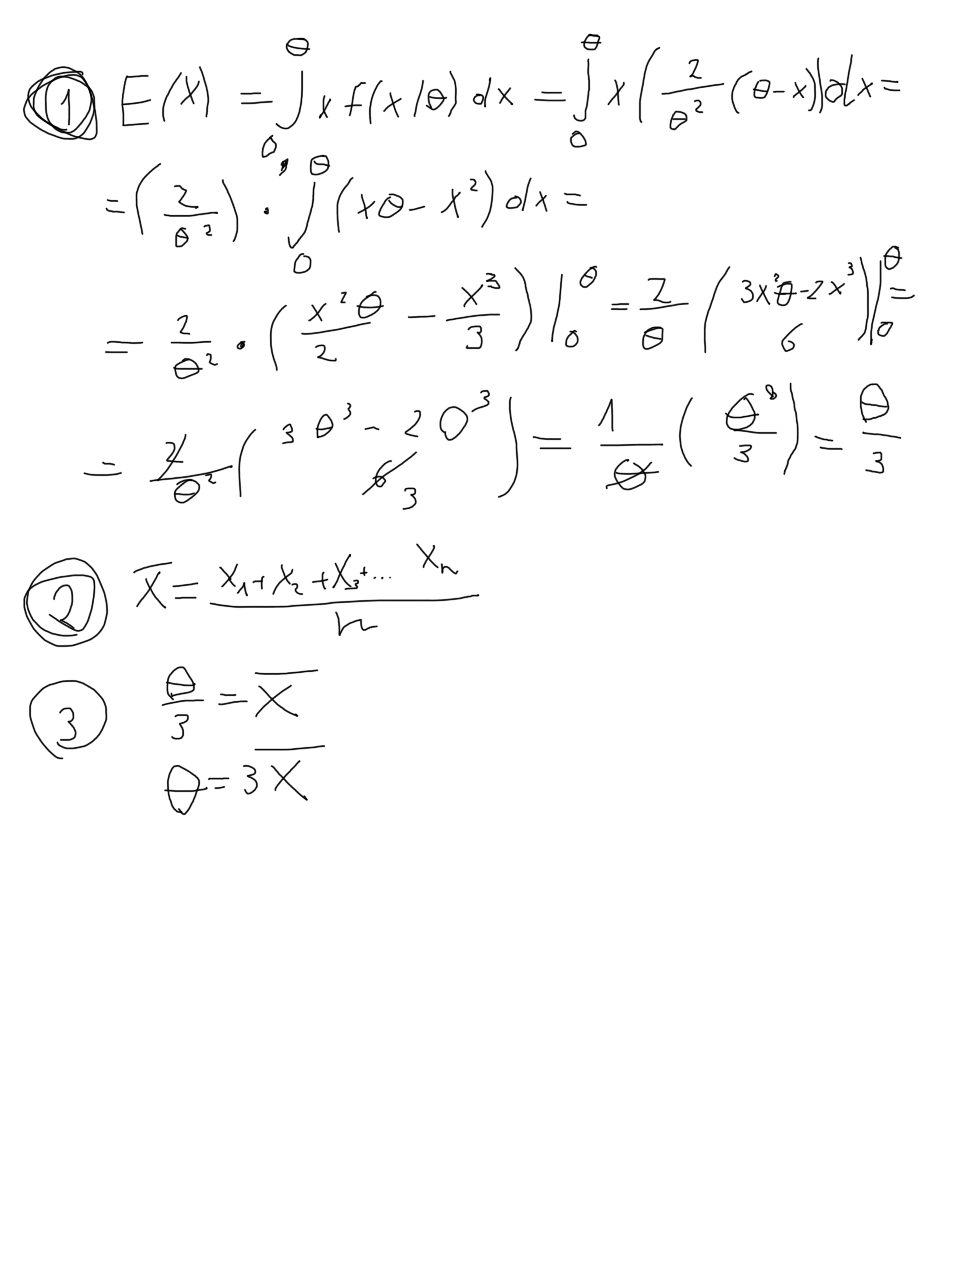 ① E(X) = ∫₀^θ x f(x/θ) dx = ∫₀^θ x (2/θ² (θ-x)) dx =
= (2/θ²) · ∫₀^θ (xθ - x²) dx =
= 2/θ² · (x²θ/2 - x³/3) |₀^θ = 2/θ ((3x²θ-2x³)/6) |₀^θ =
= 2/θ² ((3θ³ - 2θ³)/6 3) = 1/θ (θ³/3) = θ/3
② X̄ = (x₁+x₂+x₃+... xₙ)/n
③ θ/3 = X̄
θ = 3X̄